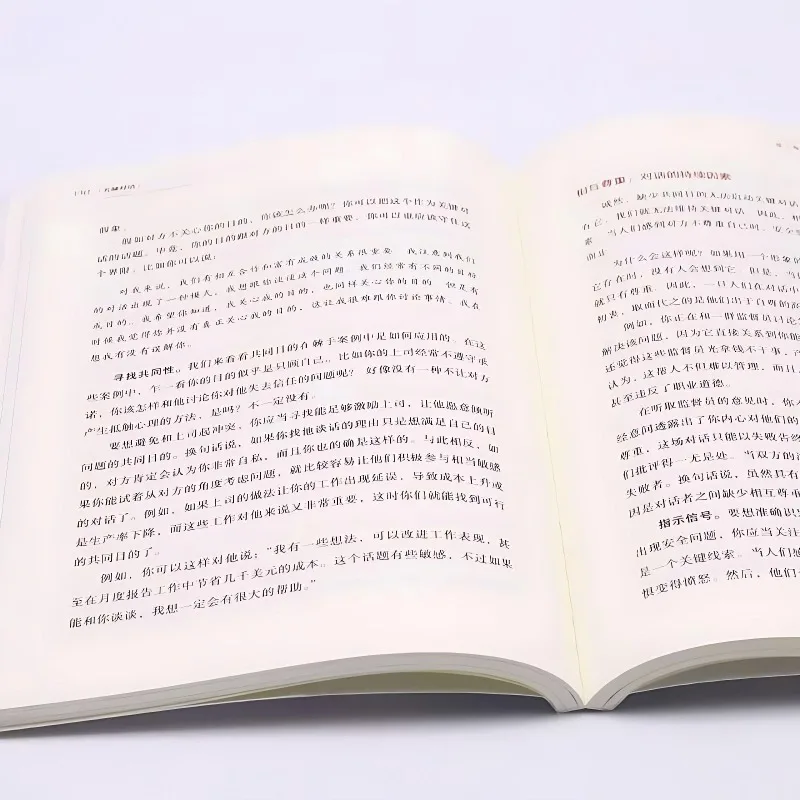 关键对话
假象。
假如对方不关心你的目的，你该怎么办呢？你可以把这个作为关键对
话的话题。毕竟，你的目的跟对方的目的一样重要。你可以也应该守住这
个界限。比如你可以说：
对我来说，我们有相互合作和富有成效的关系很重要。我注意到我们
的对话出现了一种模式，我想跟你谈谈这个问题。我们经常有不同的目标
或目的。我希望你知道，我关心我的目的，也同样关心你的目的。但是有
时候我觉得你并没有真正关心我的目的，这让我很难跟你讨论事情。我在
想我有没有误解你。
寻找共同性。我们来看看共同目的在棘手案例中是如何应用的。在这
些案例中，乍一看你的目的似乎是只顾自己。比如你的上司经常不遵守承
诺，你该怎样和他讨论你对他失去信任的问题呢？好像没有一种不让对方
产生抵触心理的方法，是吗？不一定没有。
要想避免和上司起冲突，你应当寻找能足够激励上司，让他愿意倾听
问题的共同目的。换句话说，如果你找他谈话的理由只是想满足自己的目
的，对方肯定会认为你非常自私，而且你也的确是这样的。与此相反，如
果你能试着从对方的角度考虑问题，就比较容易让他们积极参与相当敏感
的对话了。例如，如果上司的做法让你的工作出现延误，导致成本上升或
是生产率下降，而这些工作对他来说又非常重要，这时你们就能找到可行
的共同目的了。
例如，你可以这样对他说：“我有一些想法，可以改进工作表现，甚
至在月度报告工作中节省几千美元的成本。这个话题有些敏感，不过如果
能和你谈谈，我想一定会有很大的帮助。”
相互尊重：对话的持续因素
诚然，缺少共同目的无法启动关键对话
有它，我们就无法维持关键对话。因此，相
素。当人们感到对方不尊重自己时，安全
为什么会这样呢？如果用一个形象的
它存在时，没有人会想到它。但是，当
就只有尊重。因此，一旦人们在对话中
初衷，取而代之的是他们出于自尊的
例如，你正在和一群监督员讨论
解决该问题，因为它直接关系到你能
还觉得这些监督员光拿钱不干事，产
认为，这帮人不但难以管理，而且
甚至违反了职业道德。
在听取监督员的意见时，你
经意间透露出了你内心对他们的
尊重，这场对话只能以失败告终
们批评得一无是处。当双方的
失败者。换句话说，虽然具有
因是对话者之间缺少相互尊重
指示信号。要想准确识
出现安全问题，你应当关注
是一个关键线索。当人们感
惧变得愤怒。然后，他们